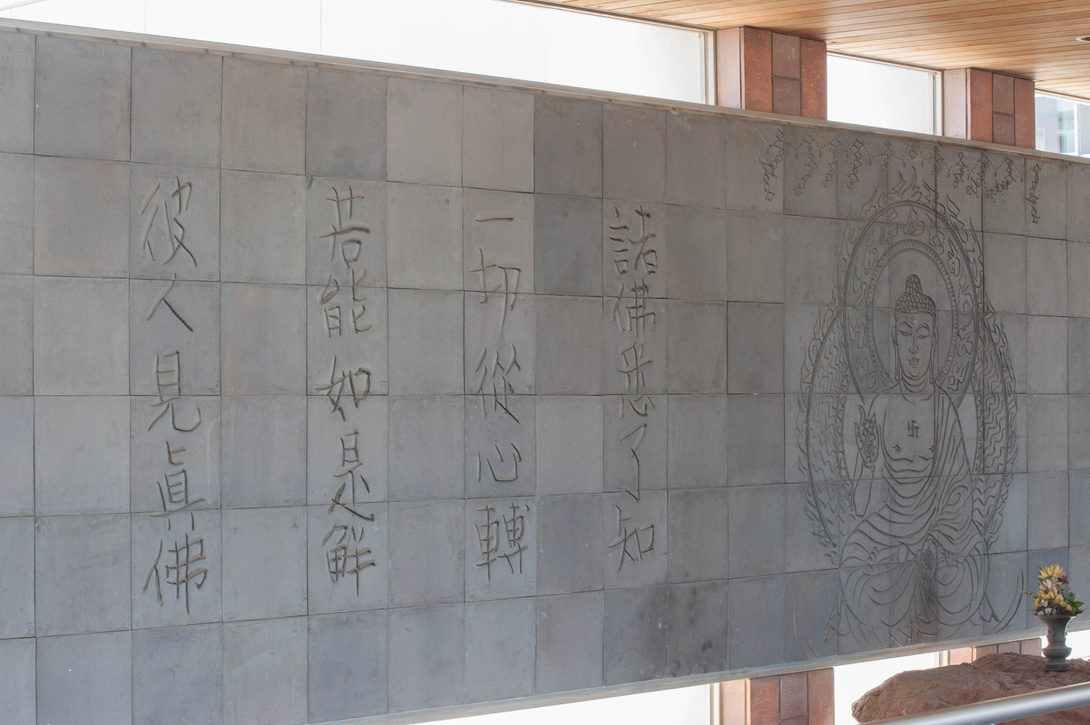 諸佛悉了知
一切從心轉
若能如是解
彼人見眞佛
卍